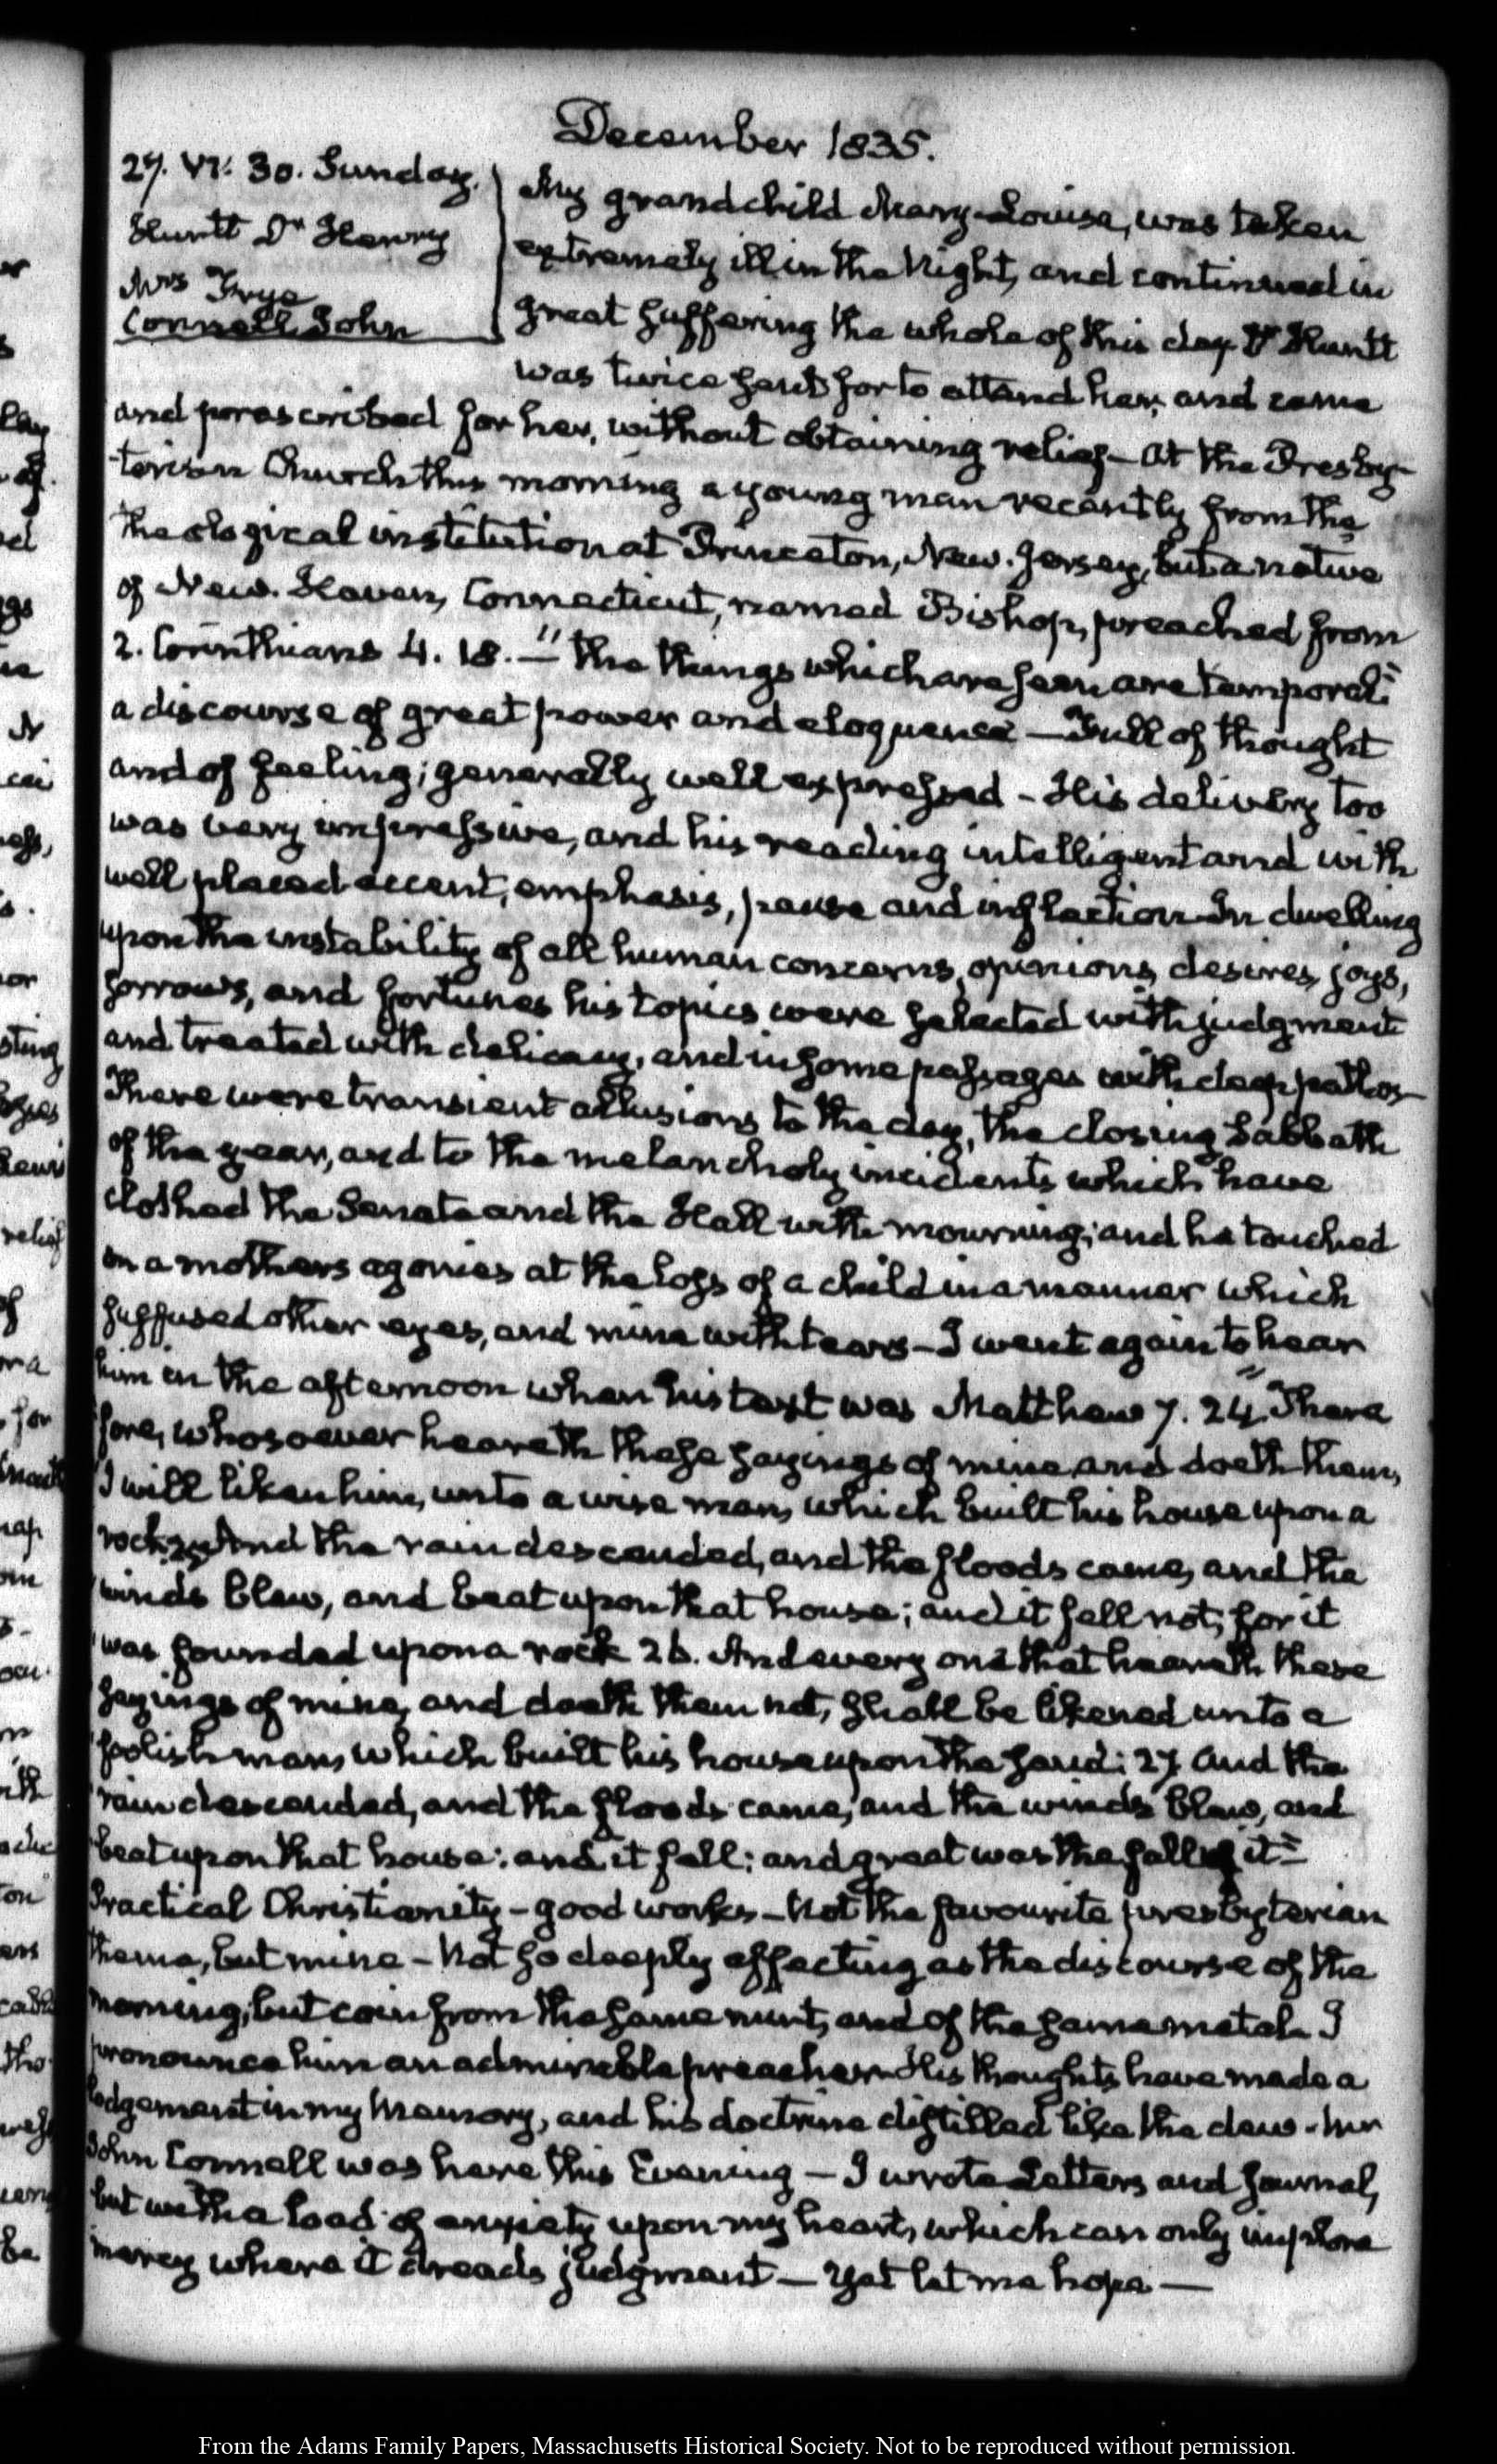 December 1835.
27. VI: 30. Sunday.
Huntt Dr Henry
Mrs Frye
Connell John
My grandchild Mary-Louisa, was taken
extremely ill in the Night, and continued in
great suffering the whole of this day Dr Huntt
was twice sent for to attend her, and came
and prescribed for her, without obtaining relief — At the Presby-
terian Church this morning a young man recently from the
theological institution at Princeton, New-Jersey, but a native
of New-Haven, Connecticut, named Bishop, preached from
2. Corinthians 4. 18. — "the things which are seen are temporal"
a discourse of great power and eloquence — Full of thought
and of feeling; generally well expressed — His delivery too
was very impressive, and his reading intelligent and with
well placed accent, emphasis, pause and inflection — In dwelling
upon the instability of all human concerns, opinions, desires, joys,
sorrows, and fortunes his topics were selected with judgment
and treated with delicacy, and in some passages with deep pathos —
There were transient allusions to the day, the closing Sabbath
of the year, and to the melancholy incidents which have
clothed the Senate and the Hall with mourning; and he touched
on a mothers agonies at the loss of a child in a manner which
suffused other eyes, and mine with tears — I went again to hear
him in the afternoon when his text was Matthew 7. 24. "There
fore, whosoever heareth these sayings of mine and doeth them,
I will liken him, unto a wise man, which built his house upon a
rock: 25. And the rain descended, and the floods came, and the
winds blew, and beat upon that house; and it fell not, for it
was founded upon a rock 26. And every one that heareth these
sayings of mine, and doeth them not, shall be likened unto a
foolish man, which built his house upon the sand: 27. And the
rain descended, and the floods came, and the winds blew, and
beat upon that house: and it fell: and great was the fall of it" —
Practical Christianity — good works — Not the favourite presbyterian
theme, but mine — Not so deeply affecting as the discourse of the
morning; but coin from the same mint, and of the same metal. I
pronounce him an admirable preacher — His thoughts have made a
lodgement in my Memory, and his doctrine distilled like the dew. Mr
John Connell was here this Evening — I wrote Letters and Journal,
but with a load of anxiety upon my heart, which can only implore
mercy where it dreads judgment — Yet let me hope —
From the Adams Family Papers, Massachusetts Historical Society. Not to be reproduced without permission.